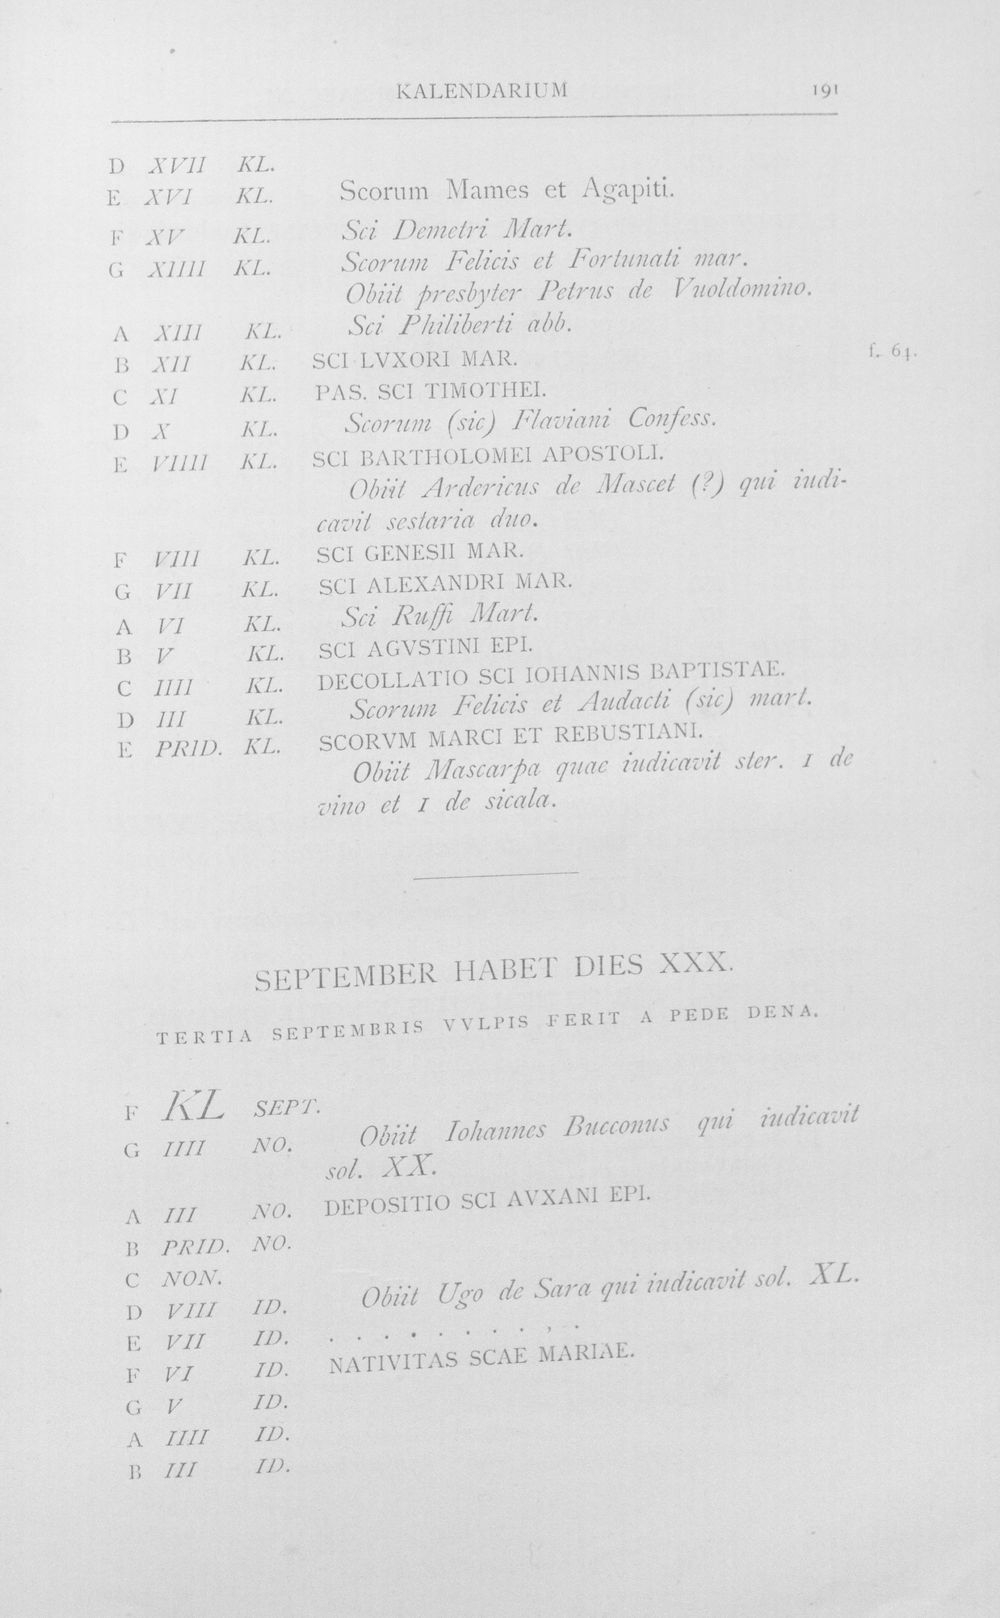 KALENDARIUM 191
D XVII KL.
E XVI KL. Scorum Mames et Agapiti.
F XV KL. Sci Demetri Mart.
G XIIII KL. Scorum Felicis et Fortunati mar.
Obiit presbyter Petrus de Vuoldomino.
A XIII KL. Sci Philiberti abb.
B XII KL. SCI LVXORI MAR. f. 64.
C XI KL. PAS. SCI TIMOTHEI.
D X KL. Scorum (sic) Flaviani Confess.
E VIIII KL. SCI BARTHOLOMEI APOSTOLI.
Obiit Ardericus de Mascet (?) qui iudi-
cavit sestaria duo.
F VIII KL. SCI GENESII MAR.
G VII KL. SCI ALEXANDRI MAR.
A VI KL. Sci Ruffi Mart.
B V KL. SCI AGVSTINI EPI.
C IIII KL. DECOLLATIO SCI IOHANNIS BAPTISTAE.
D III KL. Scorum Felicis et Audacti (sic) mart.
E PRID. KL. SCORVM MARCI ET REBUSTIANI.
Obiit Mascarpa quae iudicavit ster. 1 de
vino et 1 de sicala.
SEPTEMBER HABET DIES XXX.
TERTIA SEPTEMBRIS VVLPIS FERIT A PEDE DENA.
F KL SEPT.
G IIII NO. Obiit Iohannes Bucconus qui iudicavit
sol. XX.
A III NO. DEPOSITIO SCI AVXANI EPI.
B PRID. NO.
C NON.
D VIII ID. Obiit Ugo de Sara qui iudicavit sol. XL.
E VII ID. . . . . . . . . . .
F VI ID. NATIVITAS SCAE MARIAE.
G V ID.
A IIII ID.
B III ID.